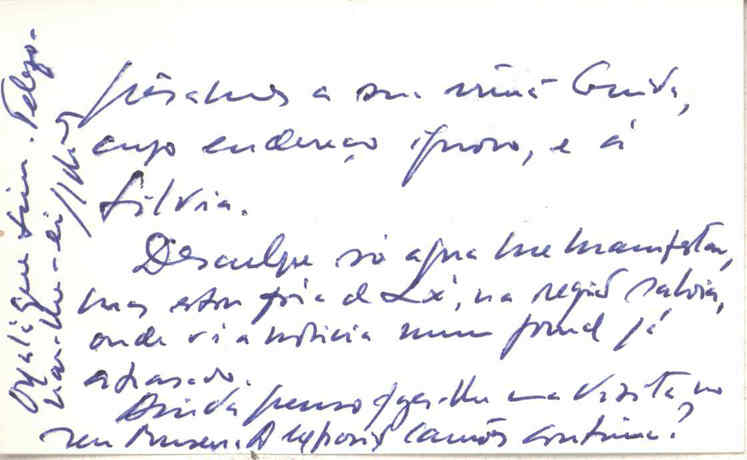 pêsames a sua irmã Guida,
cujo endereço ignoro, e à
Sílvia.
Desculpe só agora me manifestar,
mas estou fora de Lxª, na região saloia,
onde vi a notícia num jornal já
atrasado.
Ainda penso fazer-lhe uma visita no
seu Museu. A exposição Camões continua?
Oxalá que sim. Telefo-
nar-lhe-ei